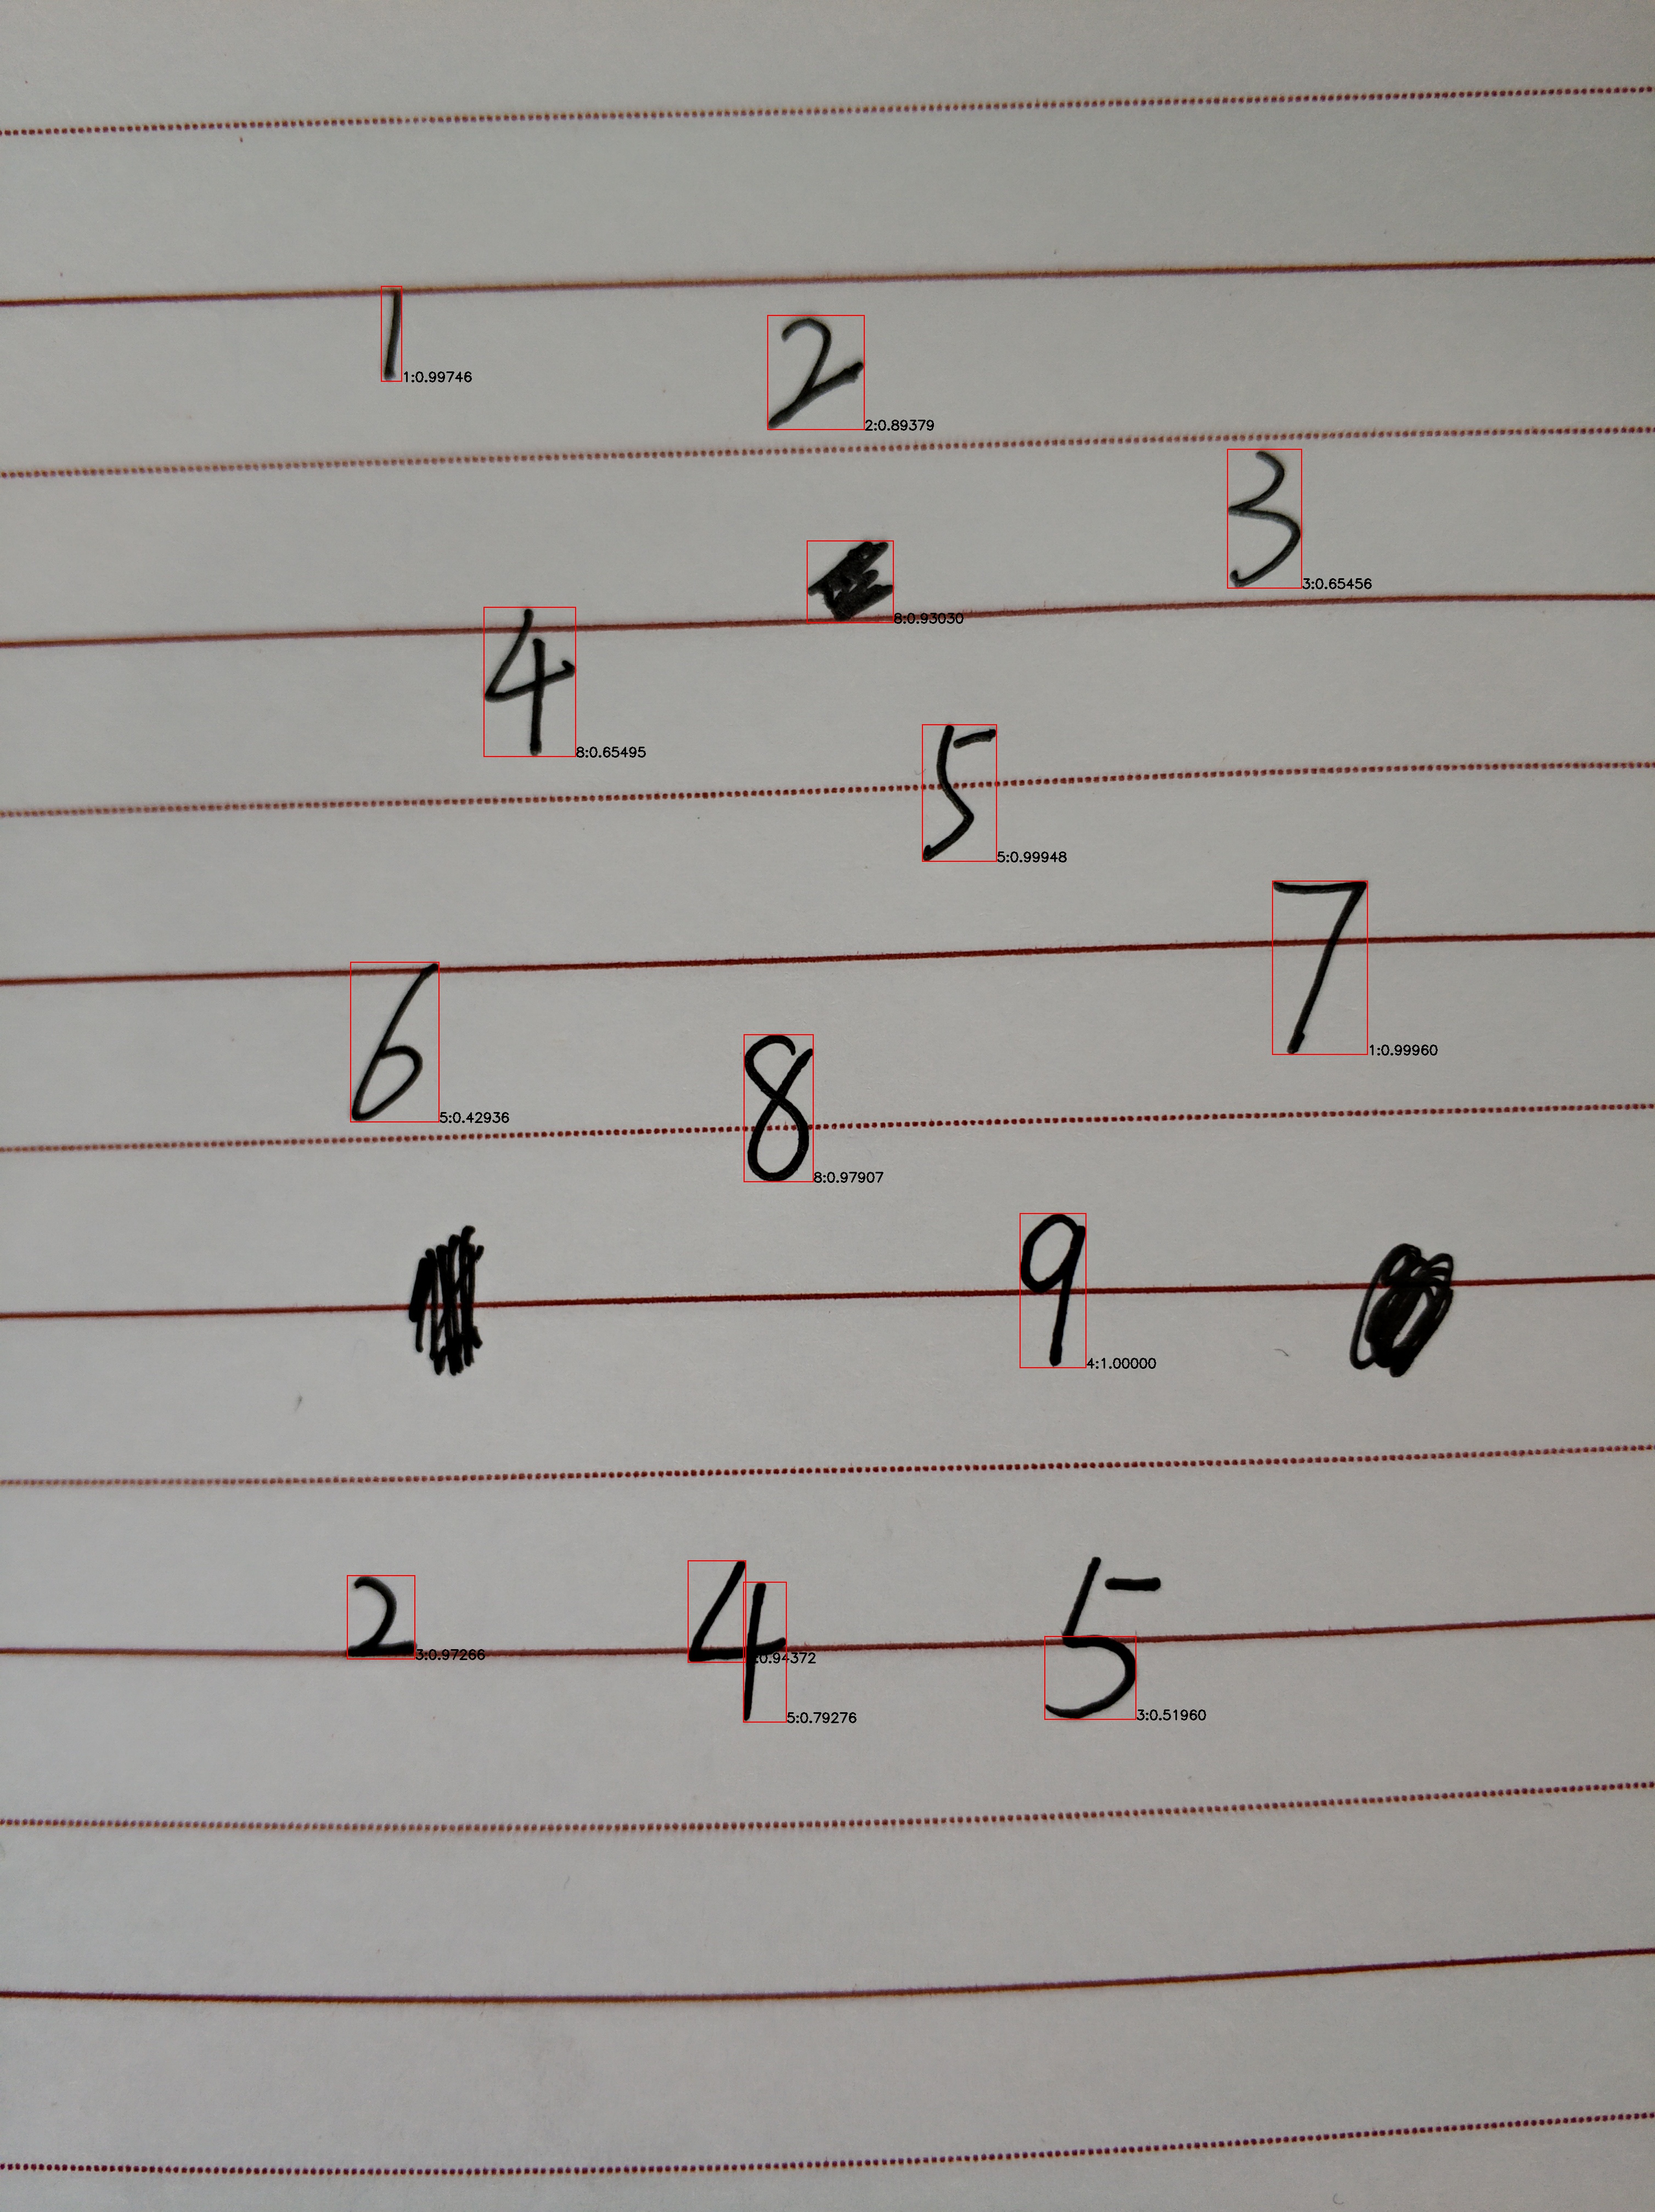 1
1:0.99746
2
2:0.89379
3
3:0.65456
8:0.93030
4
8:0.65495
5
5:0.99948
7
1:0.99960
6
5:0.42936
8
8:0.97907
9
4:1.00000
2
3:0.97266
4
:0.94372
5:0.79276
5
3:0.51960